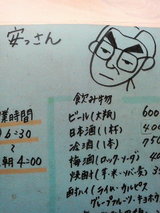 安っさん
営業時間
6:30
〜
朝4:00
飲み物
ビール(大瓶) 600
日本酒(1杯) 400
冷酒(1本) 750
梅酒(ロック・ソーダ) 400
焼酎(芋・麦・ソバ・
酎ハイ(ライム・カルピス
グレープフルーツ・